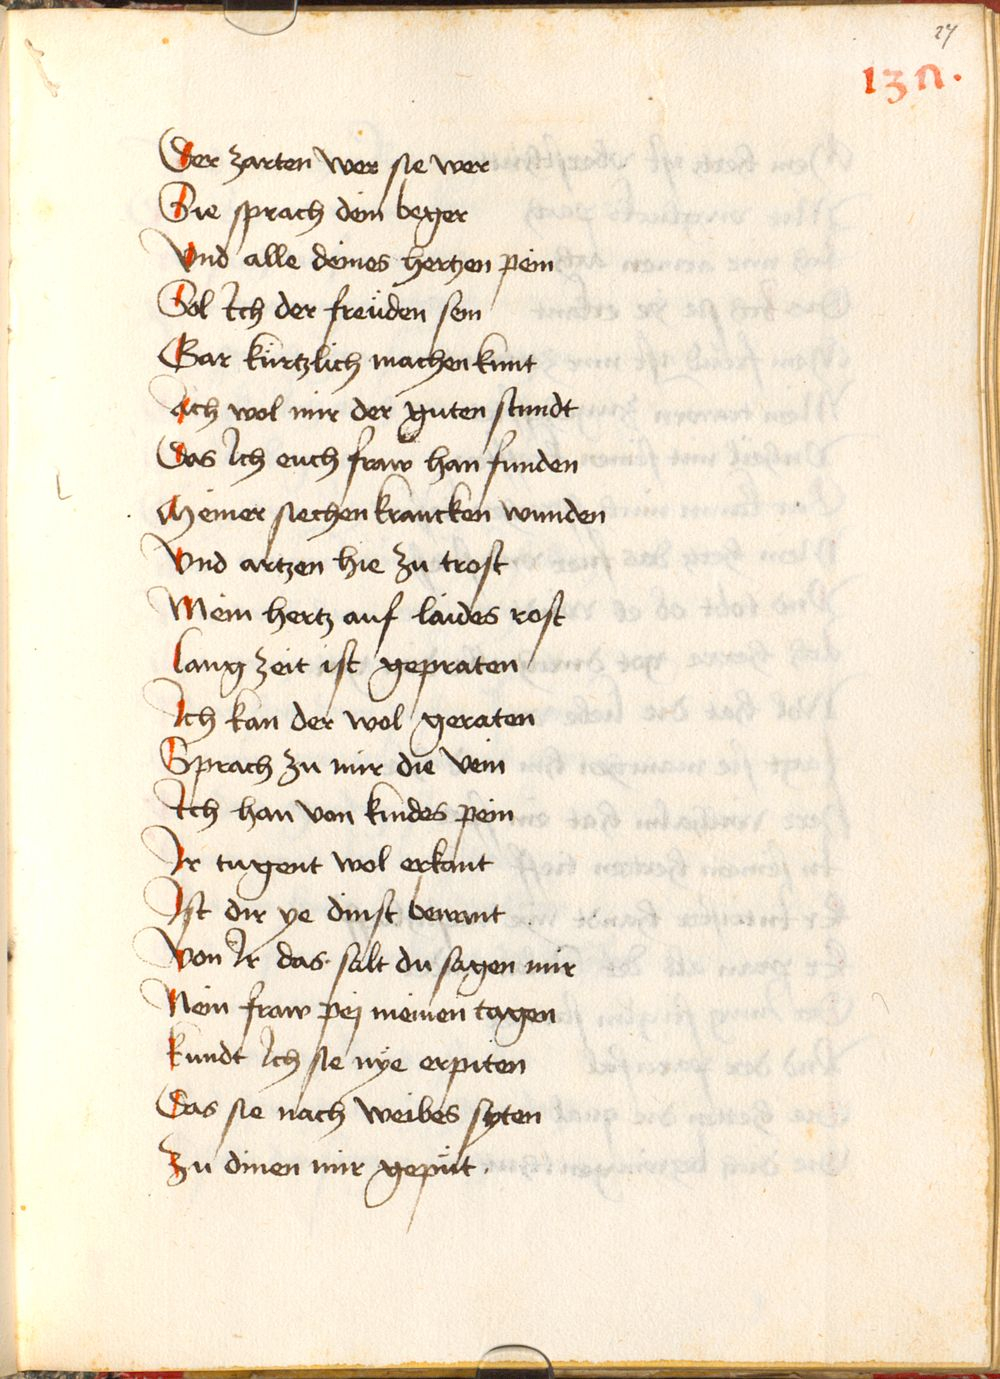 27
130.
Der zarten wer sie wer
Sie sprach dein beger
Vnd alle deines hertzen pein
Sol Ich der freüden sein
Gar kürtzlich machen kunt
Ach wol mir der guten stundt
Das Ich euch fraw han funden
Meiner siechen krancken wunden
Vnd artzen hie zu trost
Mein hertz auf laides rost
lang zeit ist gepraten
Ich kan der wol geraten
Sprach zu mir die vein
Ich han von kindes pein
Ir tugent wol erkant
Ist dir ye dinst bewant
Von Ir das salt du sagen mir
Nein fraw pej meinen tagen
kundt Ich sie nÿe erpiten
Das sie nach weibes syten
Zu dinen mir gepüt.